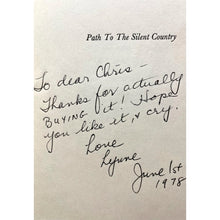 Path To The Silent Country
To dear Chris —
Thanks for actually
BUYING it! Hope
you like it, & cry.
Love
Lynne
June 1st
1978